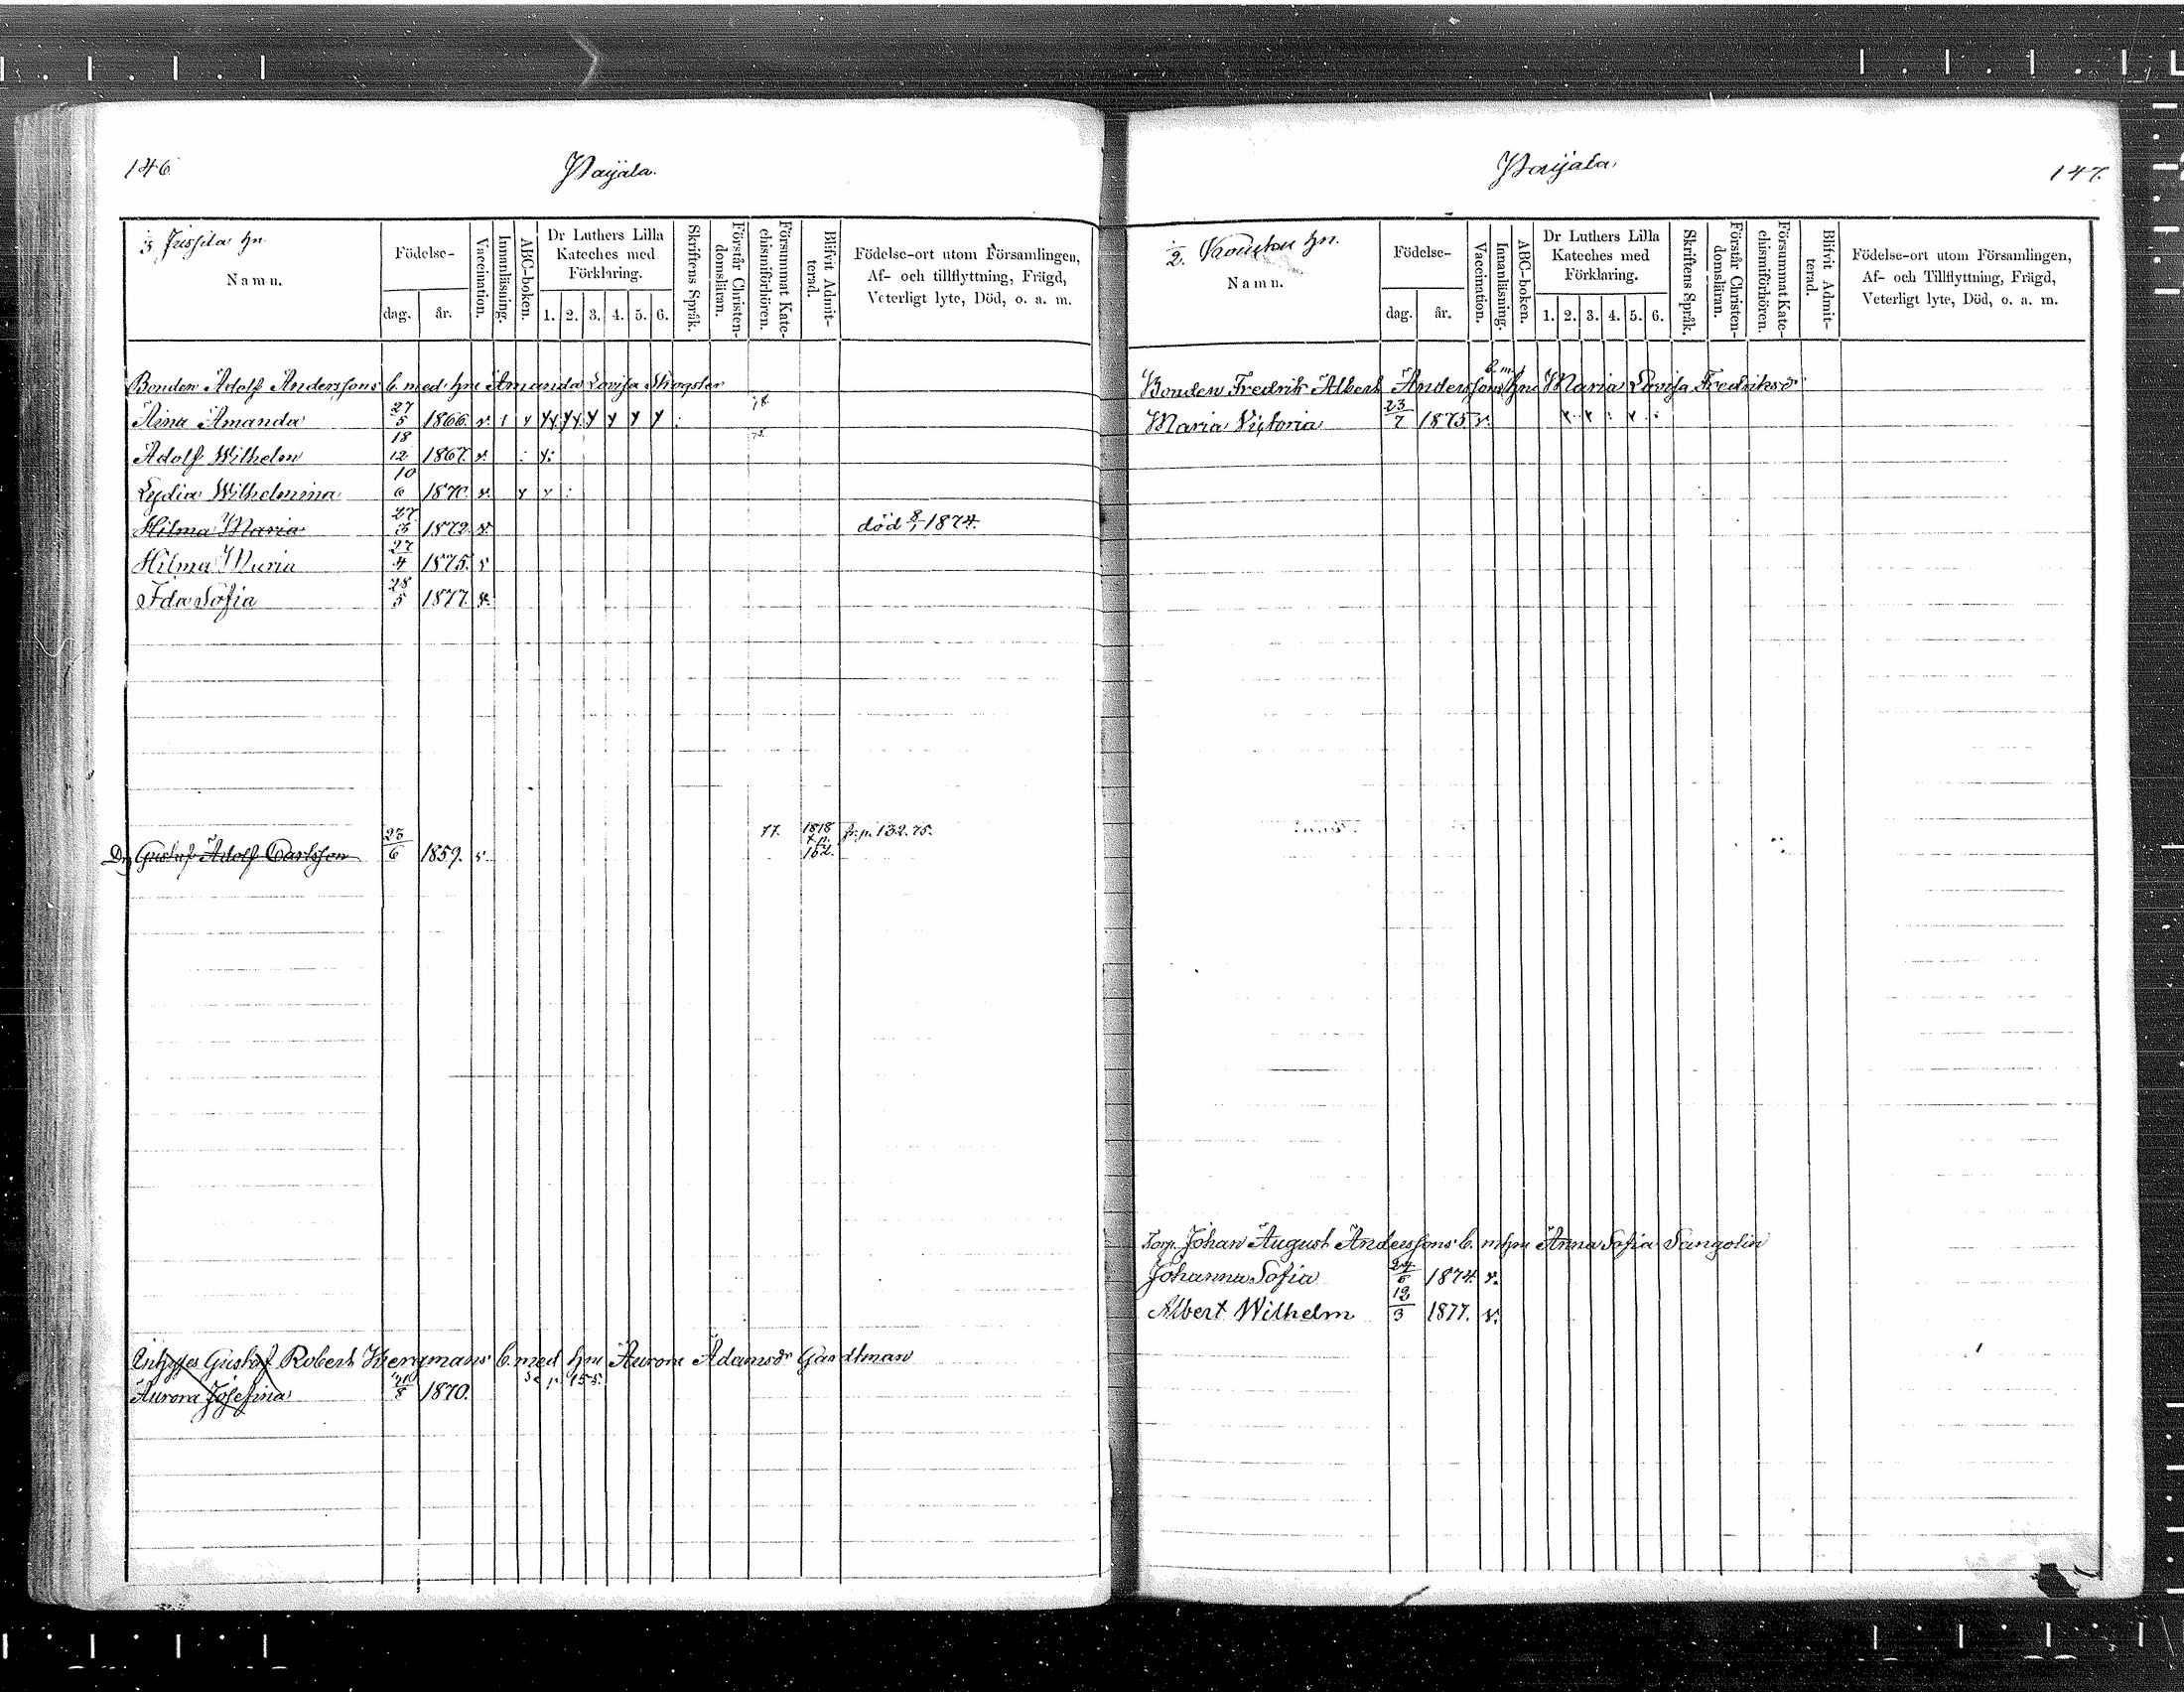 146
Födelse-
Namn.
dag.
år.
Vaccination.
Innanläsning.
ABC-boken.
Dr Luthers Lilla
Kateches med
Förklaring.
1. 2. 3. 4. 5. 6.
Skriftens Språk.
Förstår Christen-
domsläran.
Försummat Kate-
chismiförhören.
Blifvit Admit-
terad.
Födelse-ort utom Församlingen,
Af- och tillflyttning, Frägd,
Veterligt lyte, Död, o. a. m.
Bonden Adolf Anderssons b. med hu Amanda Lovisa Skogster
Aina Amanda 27/5 1866. v.
Adolf Wilhelm 18/12 1867. v.
Lydia Wilhelmina 10/6 1870. v.
Hilma Maria 27/5 1872. v. död 8/1 1874.
Hilma Maria 27/4 1875. v
Ida Sofia 28/5 1877. v.
Gustaf Adolf Carlsson 6 1859. v. 77. fr. p. 132. 75.
Gustaf Robert b. med hu Aurora Adamsdr
Aurora Josefina 8 1870.
147.
2. hn.
Namn.
Födelse-
dag.
år.
Vaccination.
Innanläsning.
ABC-boken.
Dr Luthers Lilla
Kateches med
Förklaring.
1. 2. 3. 4. 5. 6.
Skriftens Språk.
Förstår Christen-
domsläran.
Försummat Kate-
chismiförhören.
Blifvit Admit-
terad.
Födelse-ort utom Församlingen,
Af- och Tillflyttning, Frägd,
Veterligt lyte, Död, o. a. m.
Bonden Fredrik Albert Anderssons b. m. hu Maria Lovisa Fredriksdr
Maria Victoria 23/7 1875 v.
Torp. Johan August Anderssons b. m hu Anna Sofia Sangolin
Johanna Sofia 24/6 1874. v.
Albert Wilhelm 12/3 1877. v.